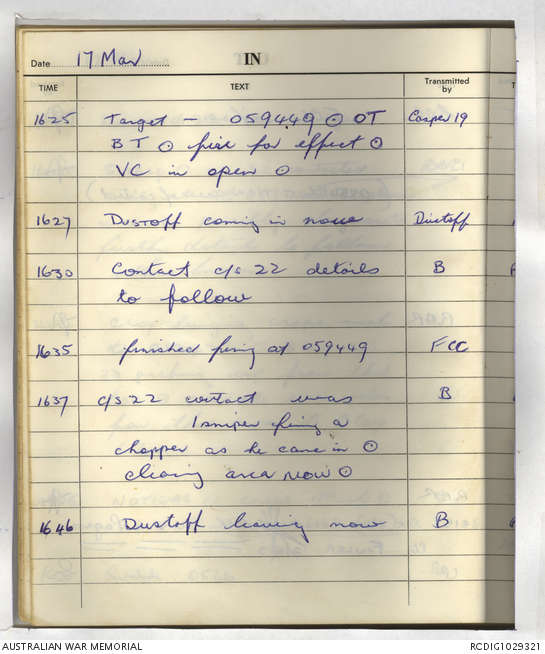 Date 17 Mar IN
TIME TEXT Transmitted by T
1625 Target - 059449 ⊙ OT Casper 19
BT ⊙ fire for effect ⊙
VC in open ⊙
1627 Dustoff coming in now Dustoff
1630 Contact c/s 22 details B
to follow
1635 finished firing at 059449 FCC
1637 c/s 22 contact was B
1 sniper firing a
chopper as he came in ⊙
clearing area now ⊙
1646 Dustoff leaving now B
AUSTRALIAN WAR MEMORIAL RCDIG1029321